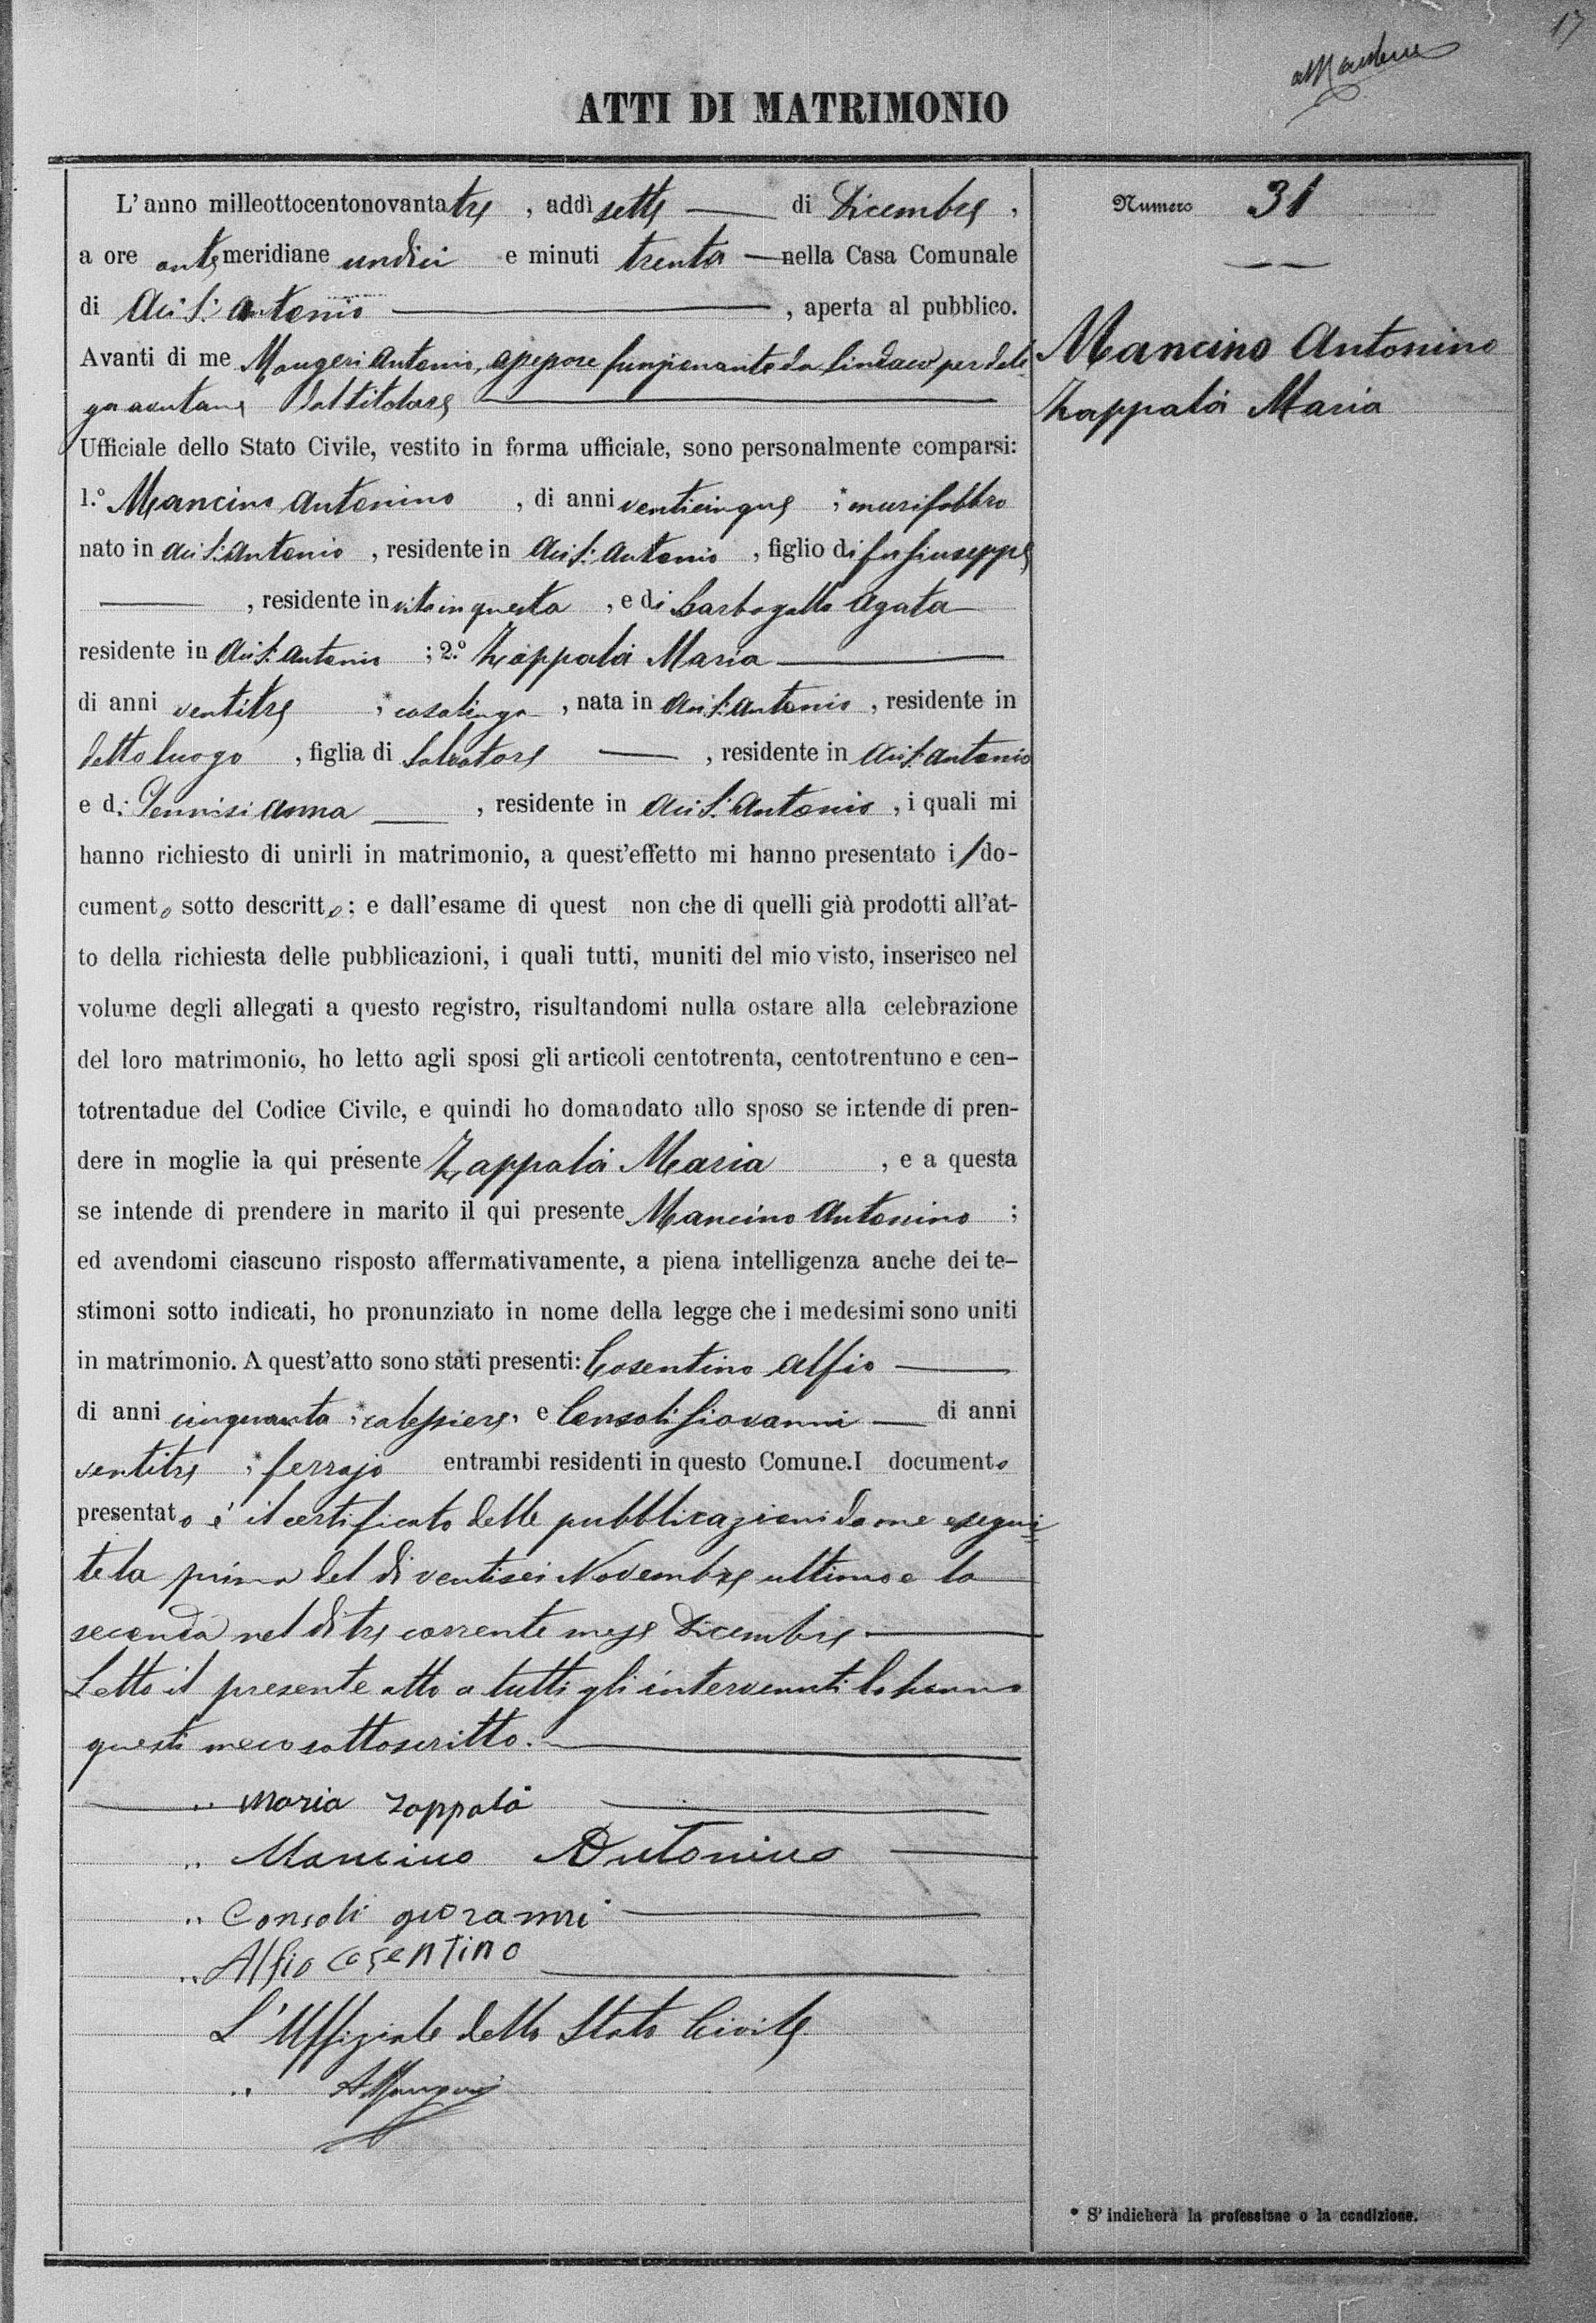 17
ATTI DI MATRIMONIO
Numero 31
Mancino Antonino
Zappalà Maria
L'anno milleottocentonovantatre, addì sette di Dicembre,
a ore antemeridiane undici e minuti trenta nella Casa Comunale
di Aci S. Antonio, aperta al pubblico.
Avanti di me Maugeri Antonio, assessore funzionante da Sindaco per dele-
ga avutane dal titolare
Ufficiale dello Stato Civile, vestito in forma ufficiale, sono personalmente comparsi:
1.º Mancino Antonino, di anni venticinque, * murifabbro
nato in Aci S. Antonio, residente in Aci S. Antonio, figlio di fu Giuseppe
, residente in vita in questa, e di Barbagallo Agata
residente in Aci S. Antonio; 2.º Zappalà Maria
di anni ventitre, * casalinga, nata in Aci S. Antonio, residente in
detto luogo, figlia di Salvatore, residente in Aci S. Antonio
e di Pennisi Anna, residente in Aci S. Antonio, i quali mi
hanno richiesto di unirli in matrimonio, a quest'effetto mi hanno presentato i/do-
cumento sotto descritto; e dall'esame di quest non che di quelli già prodotti all'at-
to della richiesta delle pubblicazioni, i quali tutti, muniti del mio visto, inserisco nel
volume degli allegati a questo registro, risultandomi nulla ostare alla celebrazione
del loro matrimonio, ho letto agli sposi gli articoli centotrenta, centotrentuno e cen-
totrentadue del Codice Civile, e quindi ho domandato allo sposo se intende di pren-
dere in moglie la qui presente Zappalà Maria, e a questa
se intende di prendere in marito il qui presente Mancino Antonino;
ed avendomi ciascuno risposto affermativamente, a piena intelligenza anche dei te-
stimoni sotto indicati, ho pronunziato in nome della legge che i medesimi sono uniti
in matrimonio. A quest'atto sono stati presenti: Cosentino Alfio
di anni cinquanta, * calessiere, e Consoli Giovanni di anni
ventitre, * ferrajo entrambi residenti in questo Comune. I documento
presentato è il certificato delle pubblicazioni da me esegui-
te la prima del dì ventisei Novembre ultimo e la
seconda nel dì tre corrente mese Dicembre
Letto il presente atto a tutti gli intervenuti lo hanno
questi meco sottoscritto.
" Maria Zappalà
" Mancino Antonino
" Consoli giovanni
" Alfio Cosentino
L'Uffiziale dello Stato Civile
" A Maugeri
* S'indicherà la professione o la condizione.